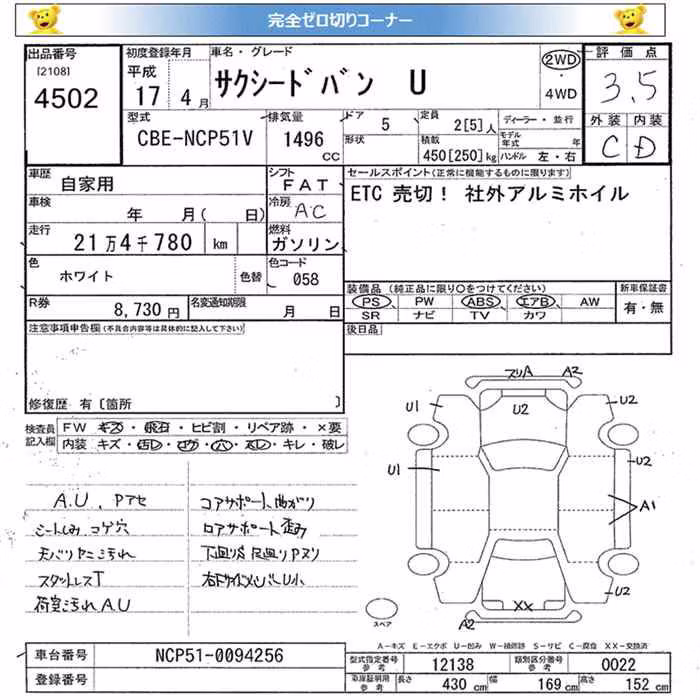 完全ゼロ切りコーナー
出品番号
[2108]
4502
初度登録年月
平成
17 4月
車名・グレード
サクシードバン U
2WD
・
4WD
評価点
3.5
外装 内装
C D
型式
CBE-NCP51V
排気量
1496
CC
ドア
5
形状
定員
2[5]人
積載
450[250]kg
ディーラー・並行
モデル年式 年
ハンドル 左・右
車歴
自家用
シフト
FAT
車検
年 月( 日)
冷房
AC
走行
21万4千780 km
燃料
ガソリン
色
ホワイト
色替
色コード
058
R券
8,730円
名変通知期限
月 日
セールスポイント(正常に機能するものに限ります)
ETC 売切! 社外アルミホイル
装備品(純正品に限り○をつけてください)
PS PW ABS エアB AW
SR ナビ TV カワ
新車保証書
有・無
後日品
注意事項申告欄(不具合内容等は具体的に記入して下さい)
修復歴 有〔箇所 〕
検査員記入欄
FW キズ・飛石・ヒビ割・リペア跡・×要
内装 キズ・汚レ・コゲ・穴・スレ・キレ・破レ
A.U. Pアセ
シートしみ コゲ穴
天バリヤニ汚れ
スタットレスT
荷室汚れ A.U
コアサポート曲がり
ロアサポート歪み
下廻りS 足廻りPヌリ
右Fサイドメンバー U小
スリA A2
U1 U2 U2
U1 U2
A1
U2
XX
A2
スペア
A-キズ E-エクボ U-凹み W-補修跡 S-サビ C-腐食 XX-交換済
車台番号
NCP51-0094256
登録番号
型式指定番号
参考
12138
類別区分番号
参考
0022
車庫証明用
参考
長さ 430 cm 幅 169 cm 高さ 152 cm